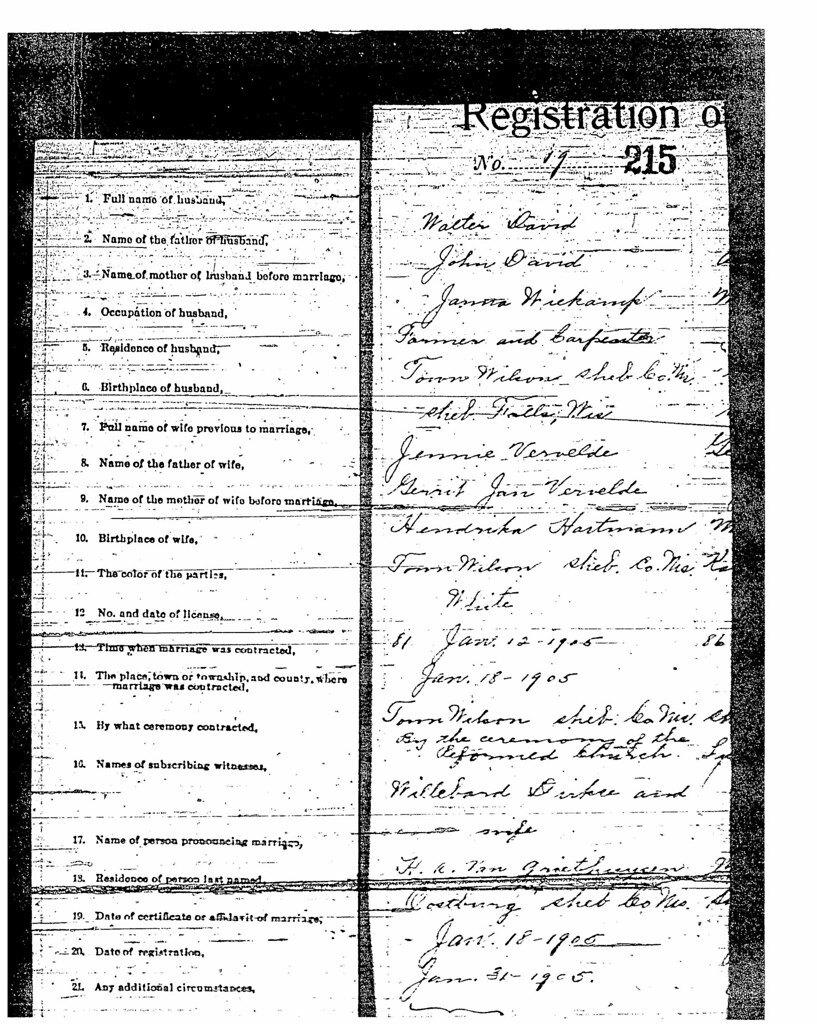 Registration o
No. 19 215
1. Full name of husband,
Walter David
2. Name of the father of husband,
John David
3. Name of mother of husband before marriage,
Janna Wiekamp
4. Occupation of husband,
Farmer and Carpenter
5. Residence of husband,
Town Wilson Sheb Co. Wis.
6. Birthplace of husband,
Sheb. Falls, Wis
7. Full name of wife previous to marriage,
Jennie Vervelde
8. Name of the father of wife,
Gerrit Jan Vervelde
9. Name of the mother of wife before marriage,
Hendrika Hartmann
10. Birthplace of wife,
Town Wilson Sheb. Co. Wis.
11. The color of the parties,
White
12 No. and date of license,
81 Jan. 12-1905 86
13. Time when marriage was contracted,
Jan. 18-1905
14. The place, town or township, and county, where
marriage was contracted,
Town Wilson Sheb. Co Wis.
15. By what ceremony contracted,
By the ceremony of the
Reformed Church.
16. Names of subscribing witnesses,
and
wife
17. Name of person pronouncing marriage,
H. A. Van
18. Residence of person last named,
Oostburg Sheb Co Wis.
19. Date of certificate or affidavit of marriage,
Jan. 18-1905
20. Date of registration,
Jan. 31-1905.
21. Any additional circumstances,